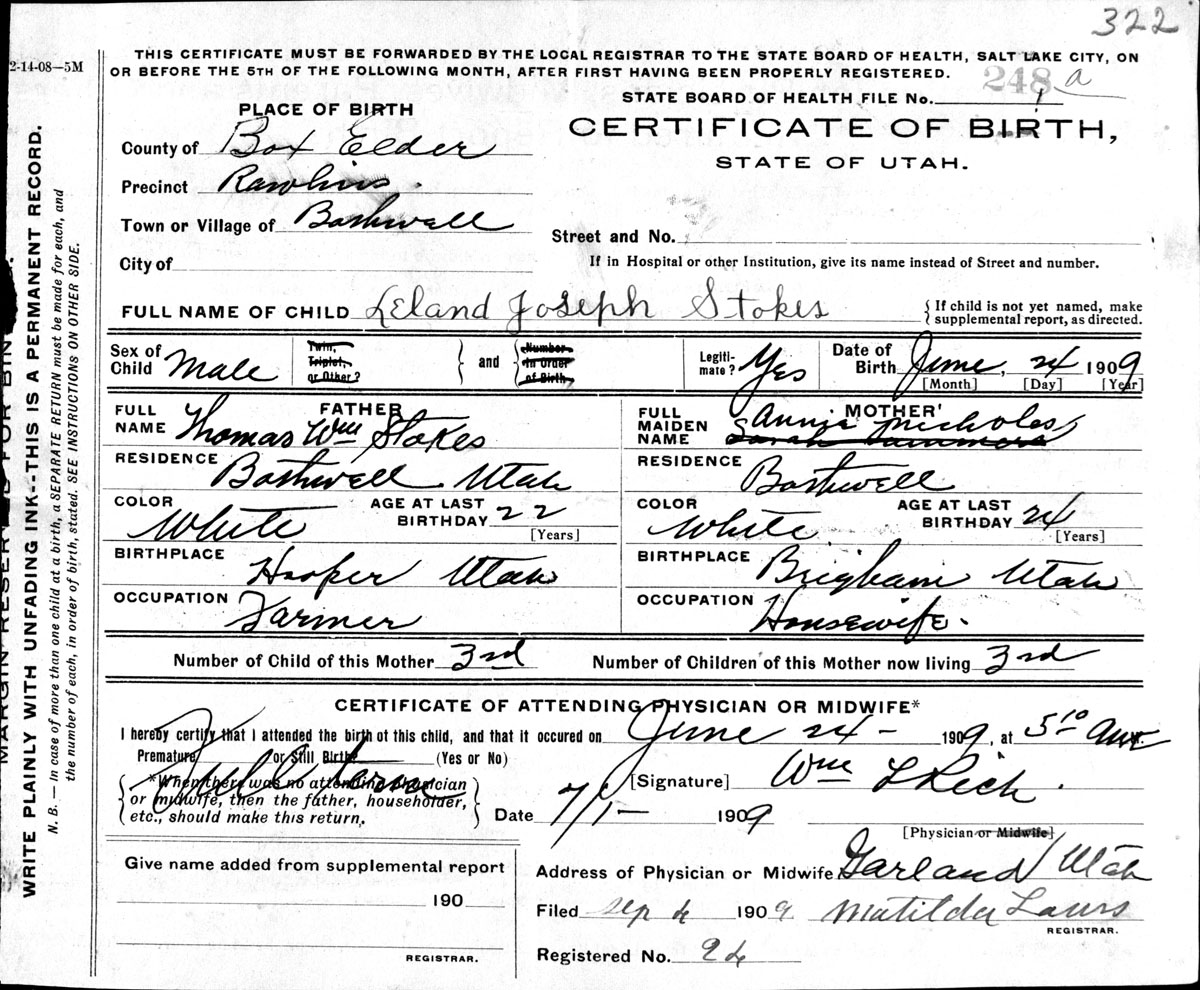 322
2-14-08—5M
THIS CERTIFICATE MUST BE FORWARDED BY THE LOCAL REGISTRAR TO THE STATE BOARD OF HEALTH, SALT LAKE CITY, ON
OR BEFORE THE 5TH OF THE FOLLOWING MONTH, AFTER FIRST HAVING BEEN PROPERLY REGISTERED.
248 a
STATE BOARD OF HEALTH FILE No. 1
PLACE OF BIRTH
CERTIFICATE OF BIRTH,
STATE OF UTAH.
County of Box Elder
Precinct Rawlins.
Town or Village of Bothwell
Street and No.
City of
If in Hospital or other Institution, give its name instead of Street and number.
FULL NAME OF CHILD Leland Joseph Stokes
{If child is not yet named, make
supplemental report, as directed.
Sex of Child Male
Twin, Triplet, or Other? } and { Number in Order of Birth
Legiti-mate? Yes
Date of Birth June, 24 1909
[Month] [Day] [Year]
FATHER
FULL NAME Thomas Wm Stokes
RESIDENCE Bothwell Utah
COLOR White
AGE AT LAST BIRTHDAY 22
[Years]
BIRTHPLACE Hooper Utah
OCCUPATION Farmer
MOTHER
FULL MAIDEN NAME Annie Nicholes
RESIDENCE Bothwell
COLOR White
AGE AT LAST BIRTHDAY 24
[Years]
BIRTHPLACE Brigham Utah
OCCUPATION Housewife.
Number of Child of this Mother 3rd
Number of Children of this Mother now living 3rd
CERTIFICATE OF ATTENDING PHYSICIAN OR MIDWIFE*
I hereby certify that I attended the birth of this child, and that it occured on June 24 - 1909, at 5 10 am.
Premature or Still Birth (Yes or No)
Full term
*When there was no attending physician
or midwife, then the father, householder,
etc., should make this return.
[Signature] Wm L Rich.
Date 7/1- 1909
[Physician or Midwife]
Give name added from supplemental report
190
REGISTRAR.
Address of Physician or Midwife Garland Utah
Filed Sep 4 1909 Matilda Laws
REGISTRAR.
Registered No. 94
MARGIN RESERVED FOR BINDING.
WRITE PLAINLY WITH UNFADING INK--THIS IS A PERMANENT RECORD.
N. B. — In case of more than one child at a birth, a SEPARATE RETURN must be made for each, and
the number of each, in order of birth, stated. SEE INSTRUCTIONS ON OTHER SIDE.